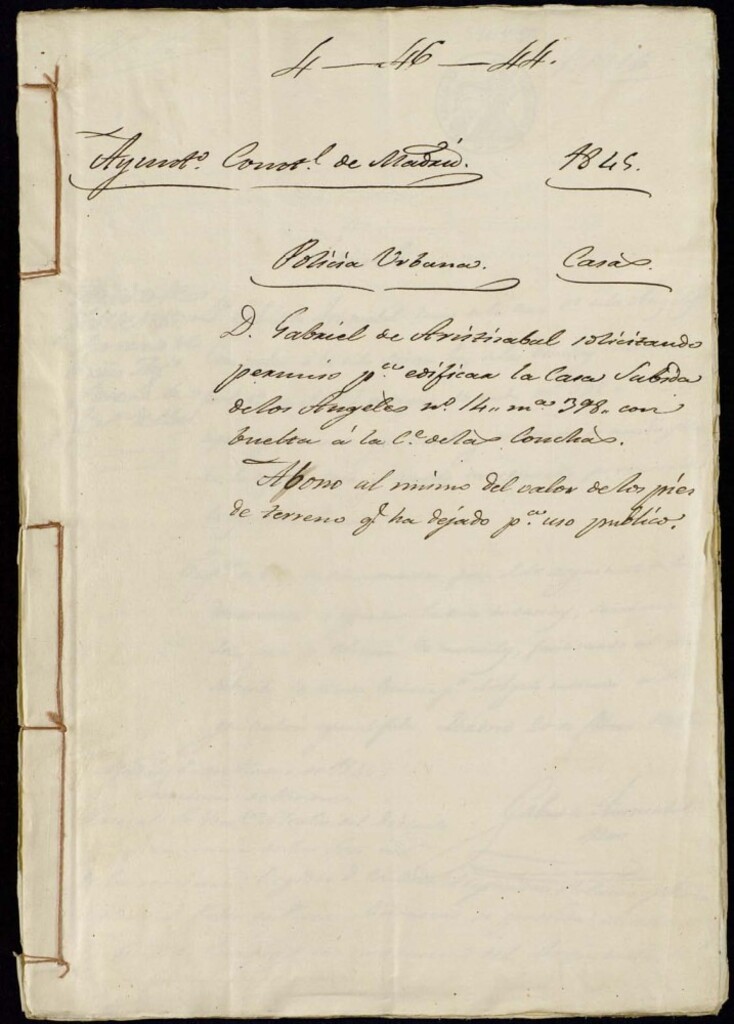 4-46-44.
Ayuntº. Constl. de Madrid. 1845.
Policia Urbana. Casas.
D. Gabriel de Aristizabal solicitando
permiso pª. edificar la Casa Subida
de los Angeles nº. 14,, mª 398,, con
buelta á la Cª. de las Conchas.
Abono al mismo del valor de los pies
de terreno q.e ha dejado pª. uso publico.